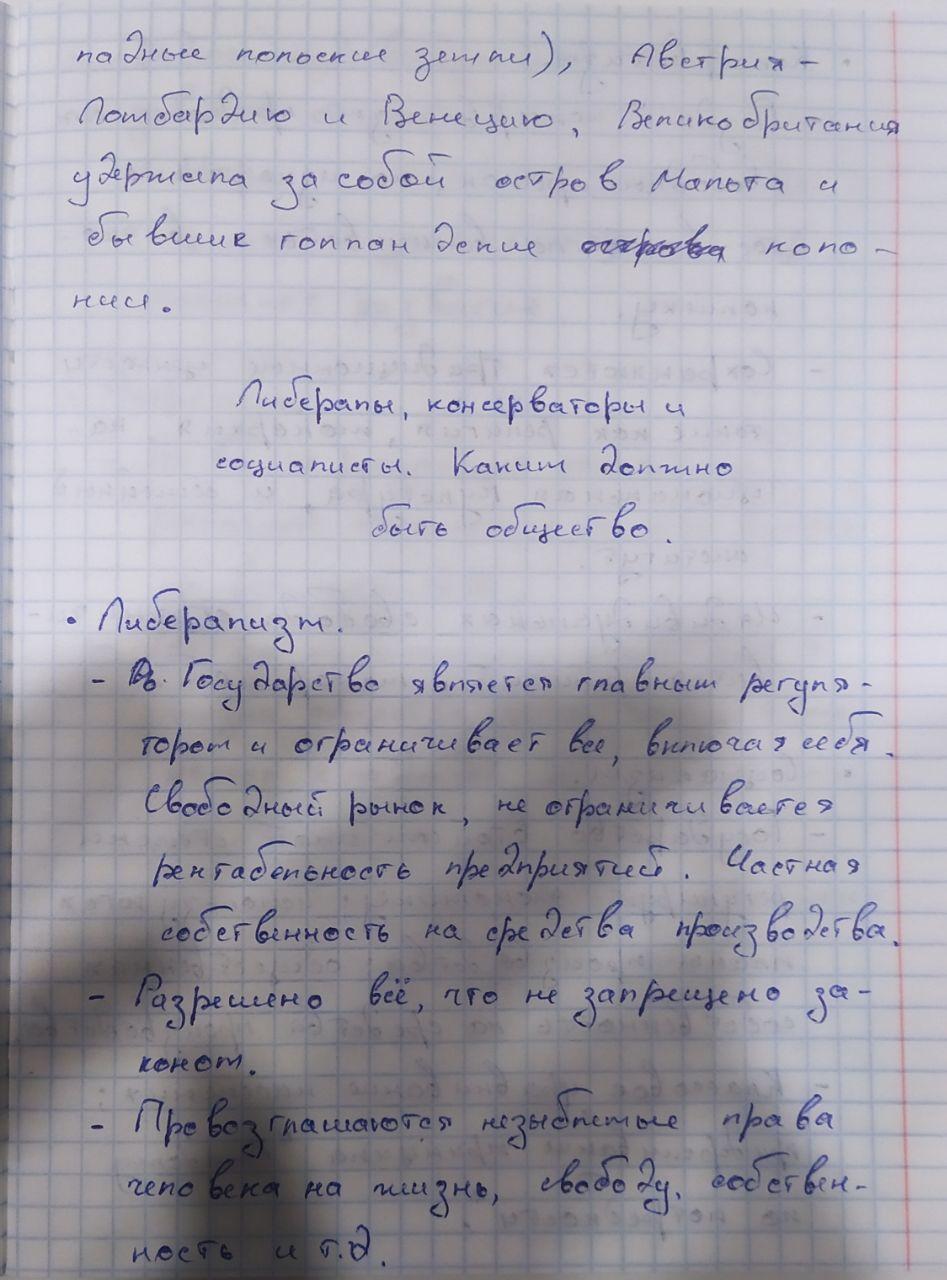 падные польские земли), Австрия -
Ломбардию и Венецию, Великобритания
удержала за собой остров Мальта и
бывшие голландские острова коло-
нии.
Либералы, консерваторы и
социалисты. Каким должно
быть общество.
• Либерализм.
- Государство является главным регуля-
тором и ограничивает все, включая себя.
Свободный рынок, не ограничивается
рентабельность предприятий. Частная
собственность на средства производства.
- Разрешено всё, что не запрещено за-
коном.
- Провозглашаются незыблемые права
человека на жизнь, свободу, собствен-
ность и т.д.